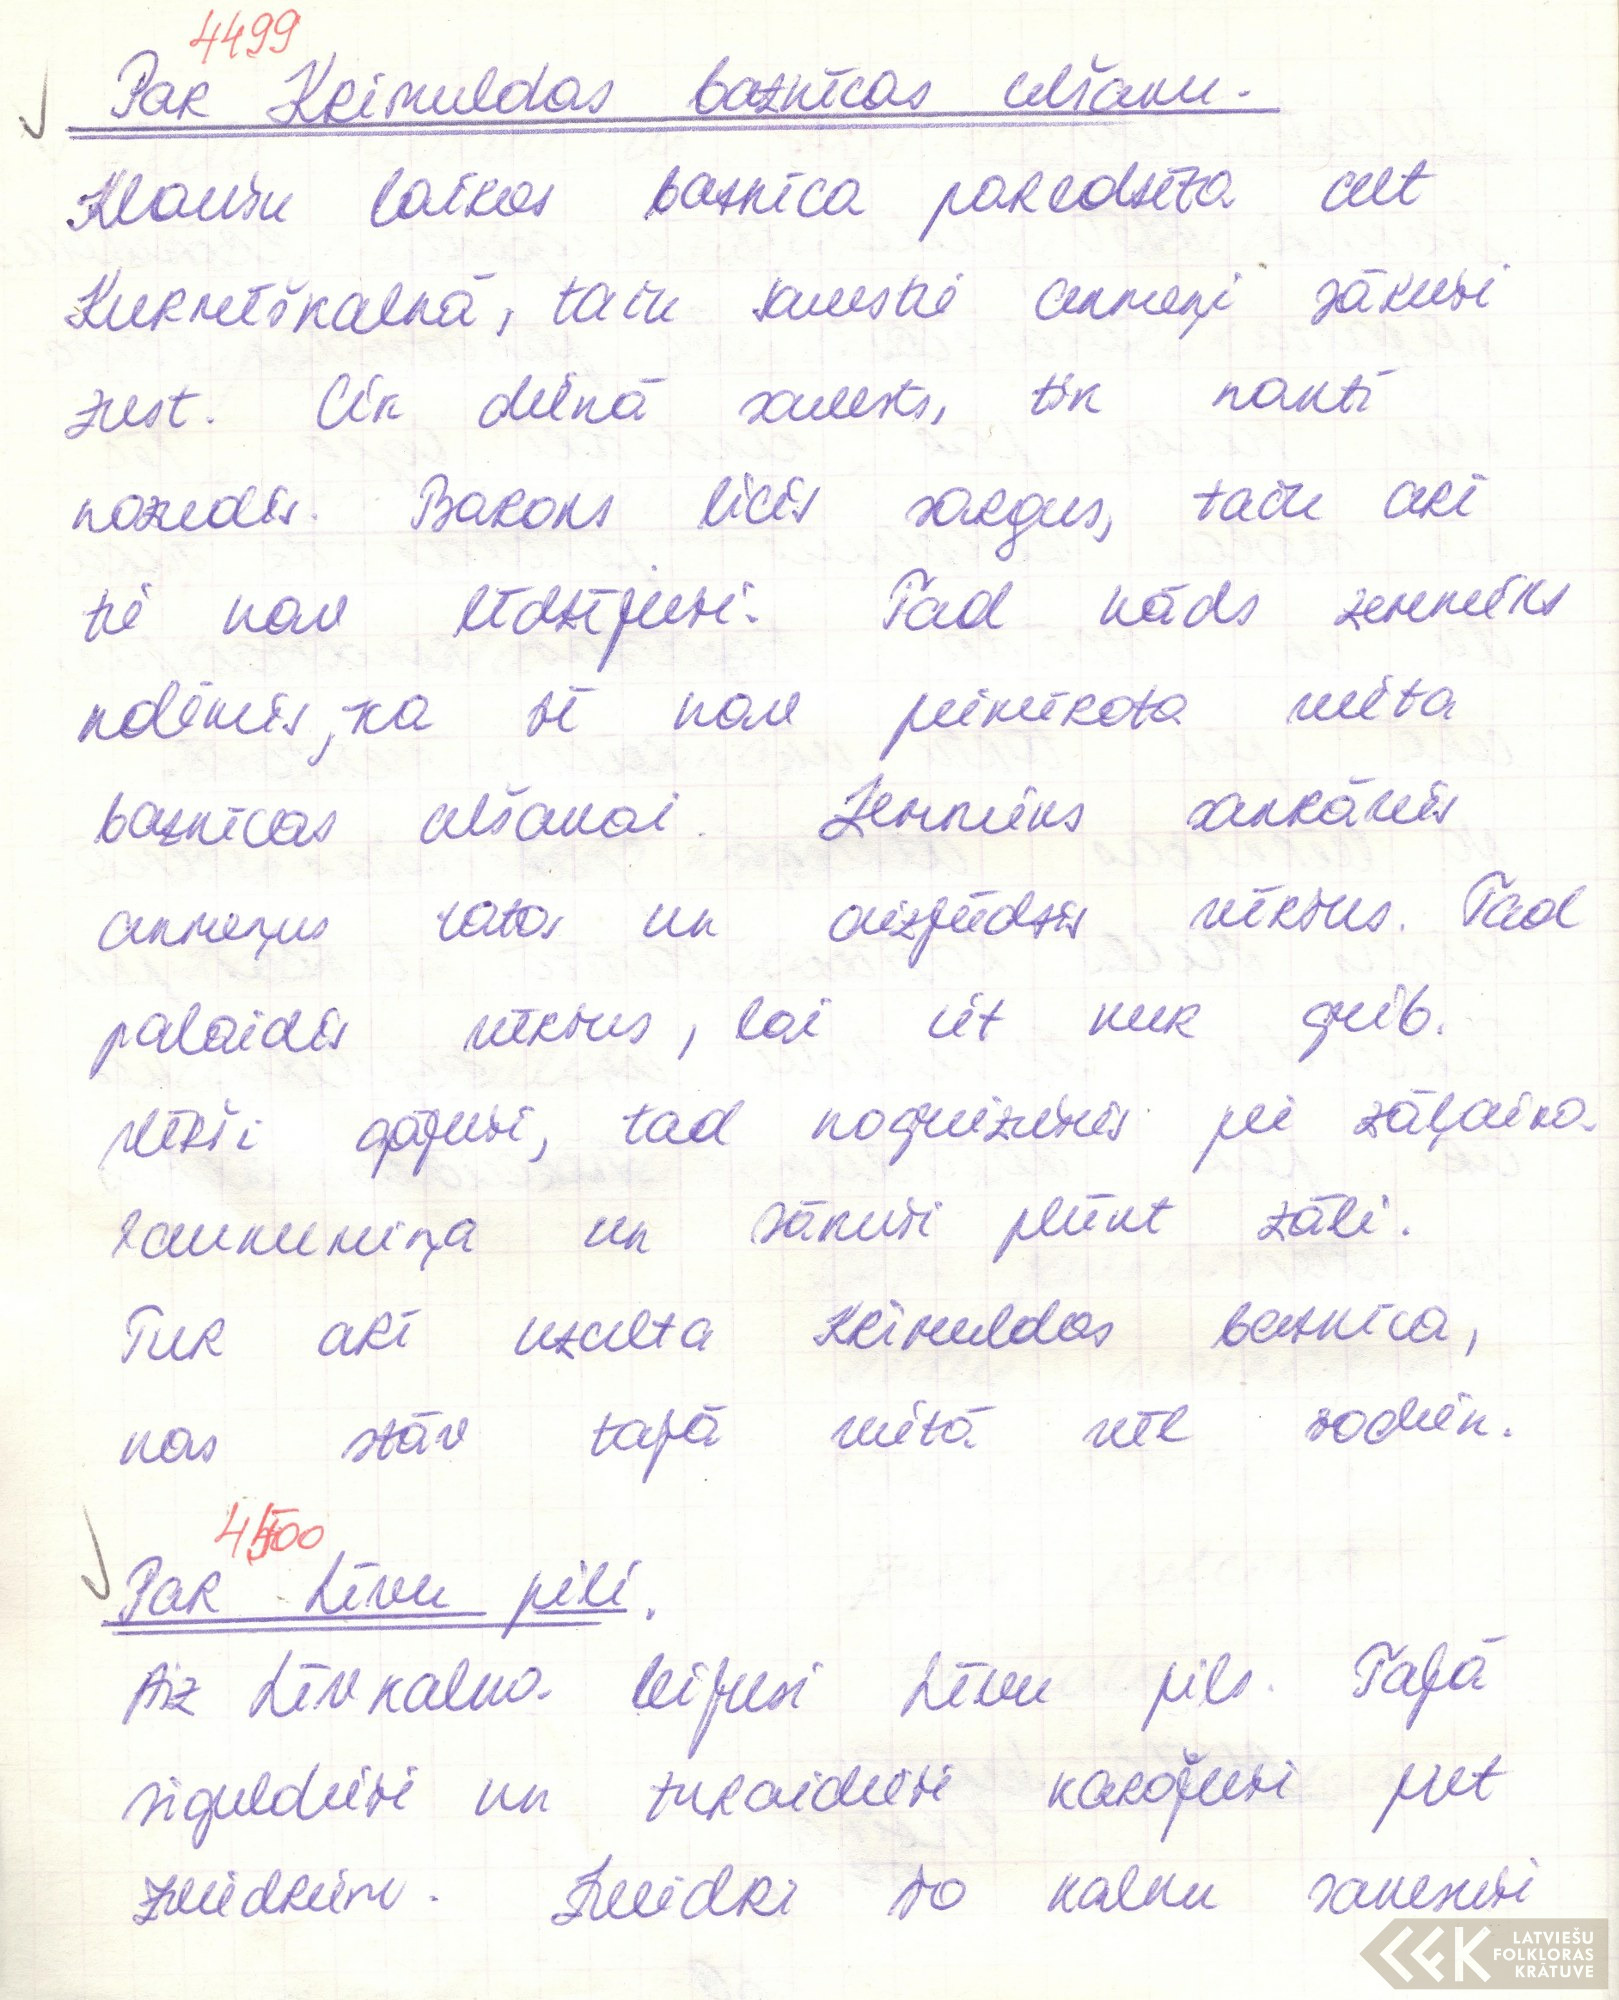 4499
Par Krimuldas baznīcas celšanu.
Klaušu laikos baznīca paredzēta celt
Kurmīškalnā, taču savestie akmeņi sākuši
zust. Cik dienā savests, tik naktī
nozudis. Barons licis sargus, taču arī
tie nav līdzējuši. Tad kāds zemnieks
nolēmis, ka šī nav piemērota vieta
baznīcas celšanai. Zemnieks sakrāvis
akmeņus ratos un aizjūdzis vēršus. Tad
palaidis vēršus, lai iet kur grib.
Vērši gājuši, tad nogriezušies pie zāļaina
laukumiņa un sākuši plūkt zāli.
Tur arī uzcelta Krimuldas baznīca,
kas stāv tajā vietā vēl šodien.
4500
Par Līvu pili.
Aiz Līvkalna bijusi Līvu pils. Tajā
siguldieši un turaidieši karojuši pret
zviedriem. Zviedri šo kalnu sanesuši
LATVIEŠU
FOLKLORAS
KRĀTUVE